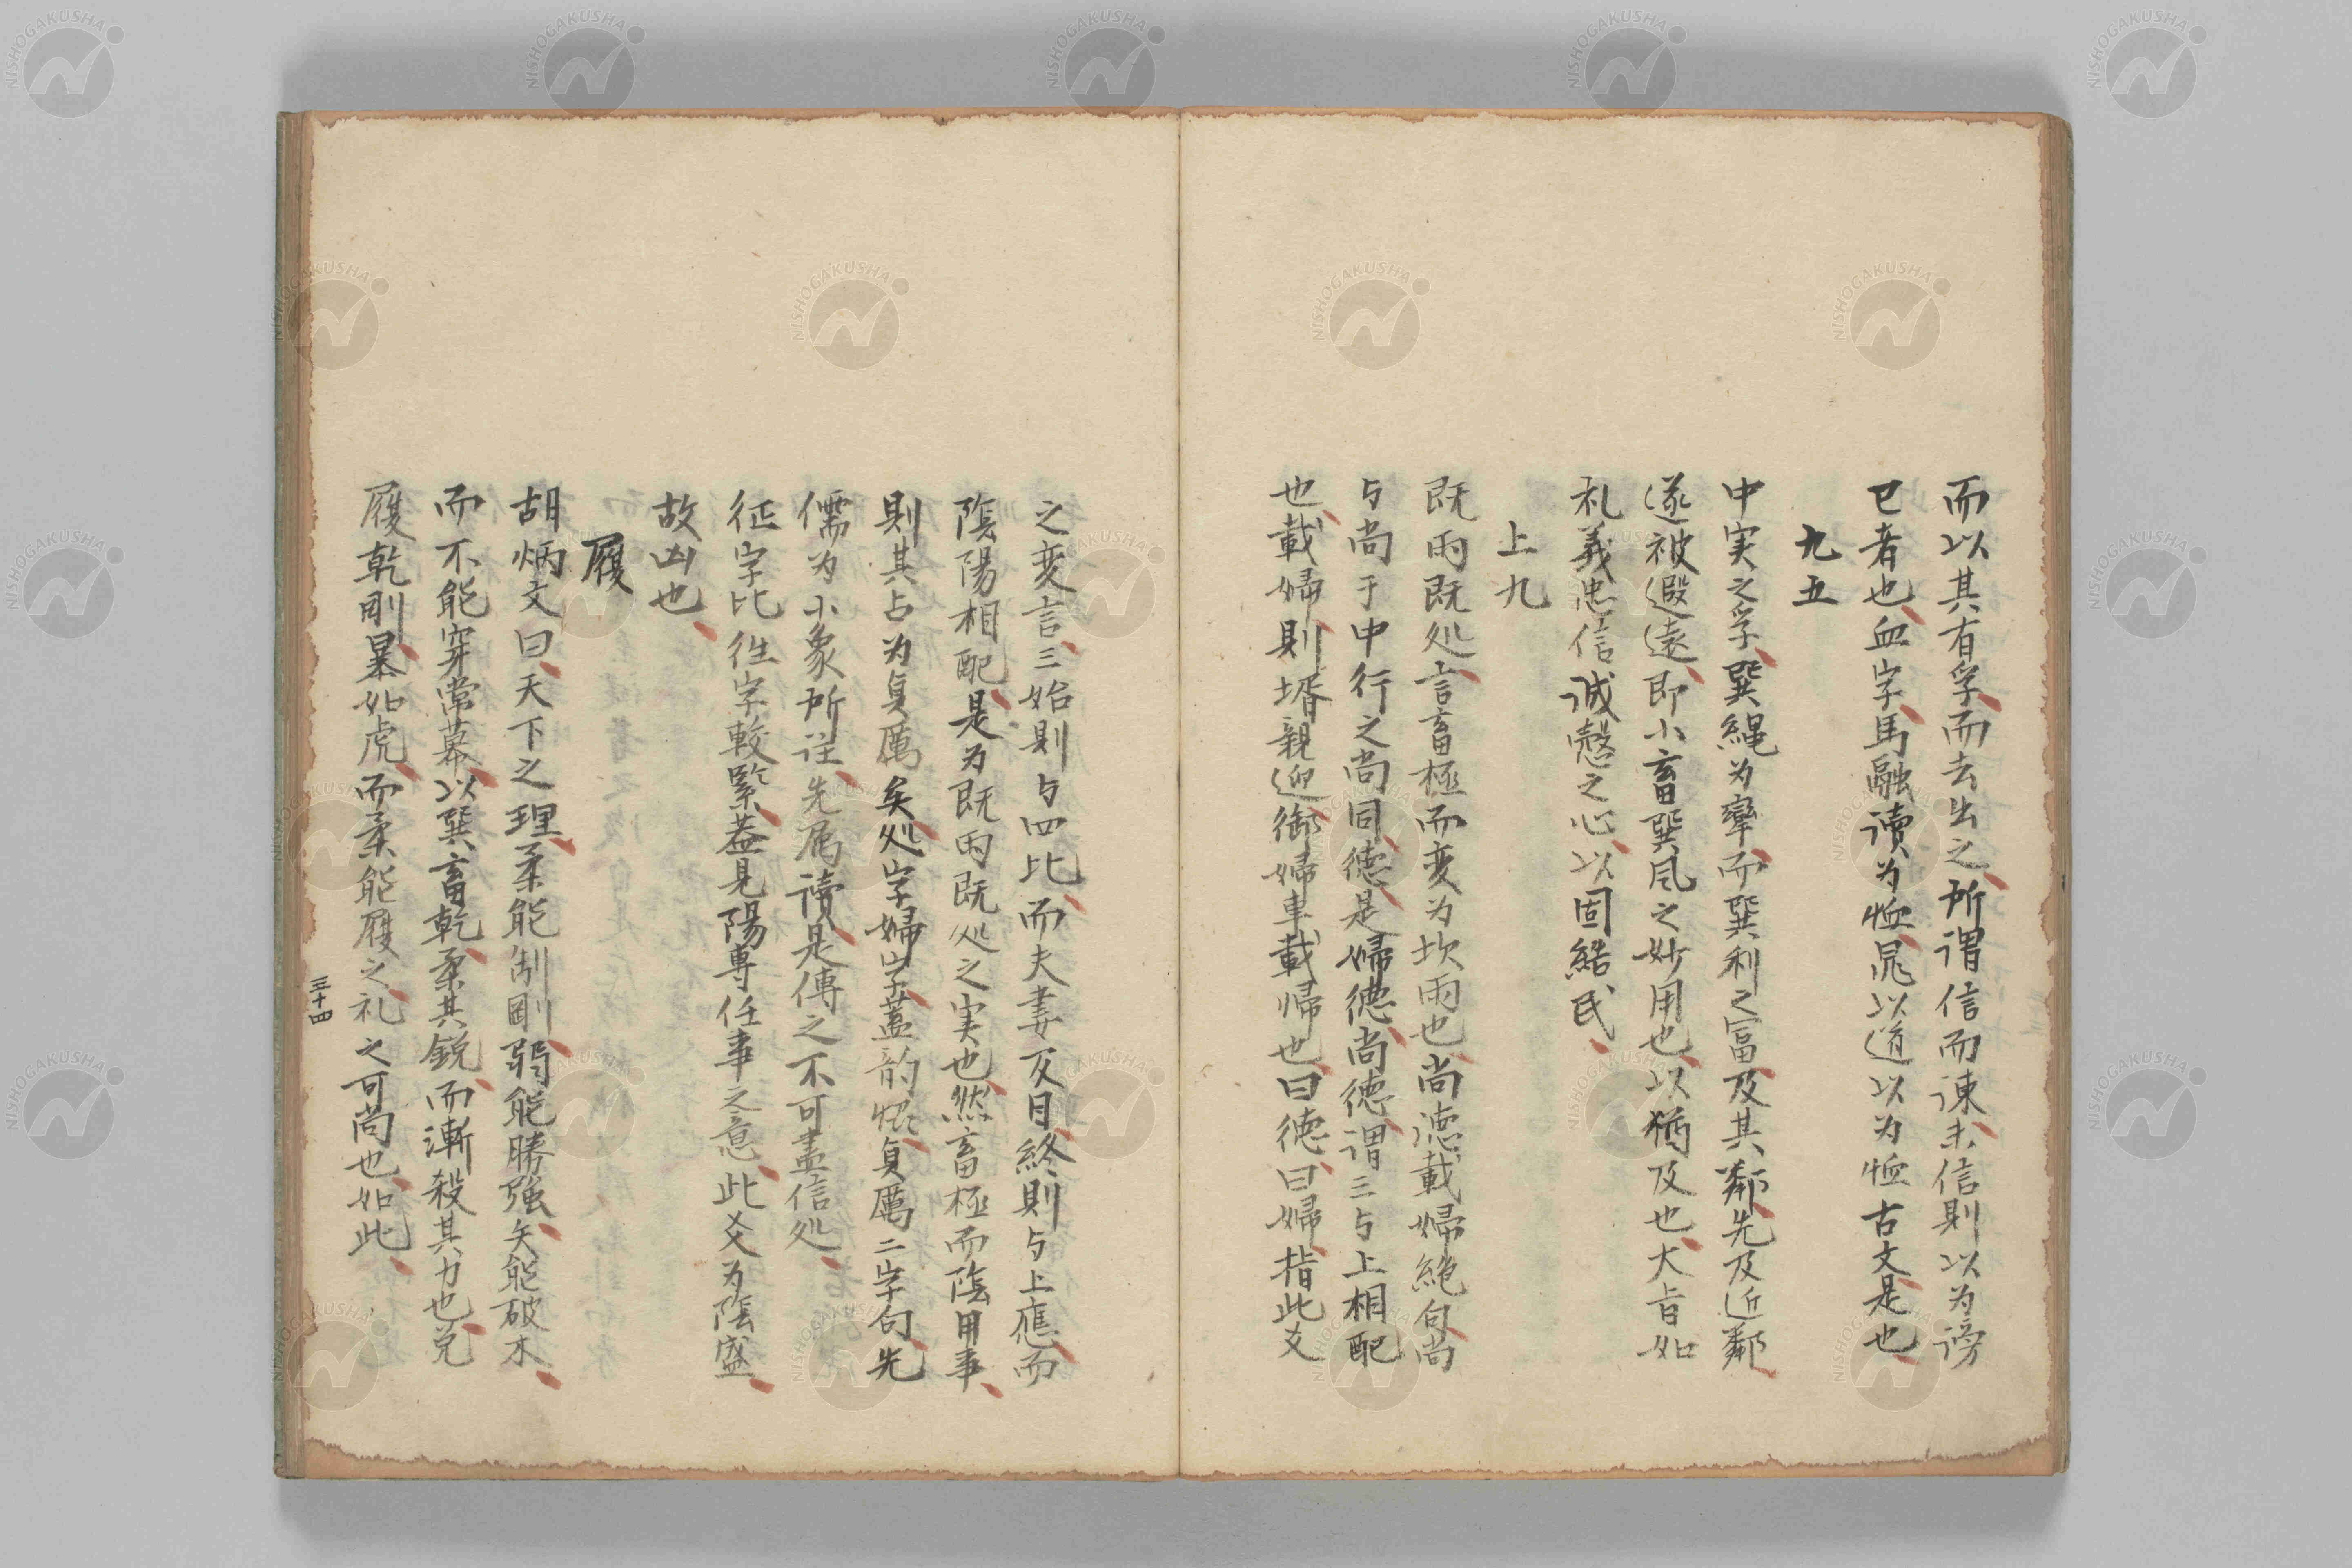 而以其有孚而去出之所謂信而諌未信則以为謗
已者也血字馬融讀为恤晁以道以为恤古文是也
九五
中実之孚巽繩为攣而巽利之冨及其鄰先及近鄰
遂被遐遠即小畜巽風之妙用也以猶及也大旨如
礼義忠信誠慤之心以固結民
上九
既雨既処言畜極而变为坎雨也尚徳載婦絶句尚
与尚于中行之尚同徳是婦徳尚徳謂三与上相配
也載婦則壻親迎御婦車載帰也曰徳曰婦指此爻
之变言三始則与四比而夫妻反目終則与上應而
陰陽相配是为既雨既処之実也然畜極而陰用事
則其占为貞厲矣処字婦字蓋韵貞厲二字句先
儒为小象所註先属讀是傳之不可盡信処
征字比往字較緊蓋見陽専任事之意此爻为陰盛
故凶也
履
胡炳文曰天下之理柔能制剛弱能勝強矢能破木
而不能穿常幕以巽畜乾柔其鋭而漸殺其力也兑
履乾剛暴如虎而柔能履之礼之可尚也如此
三十四
NISHOGAKUSHA